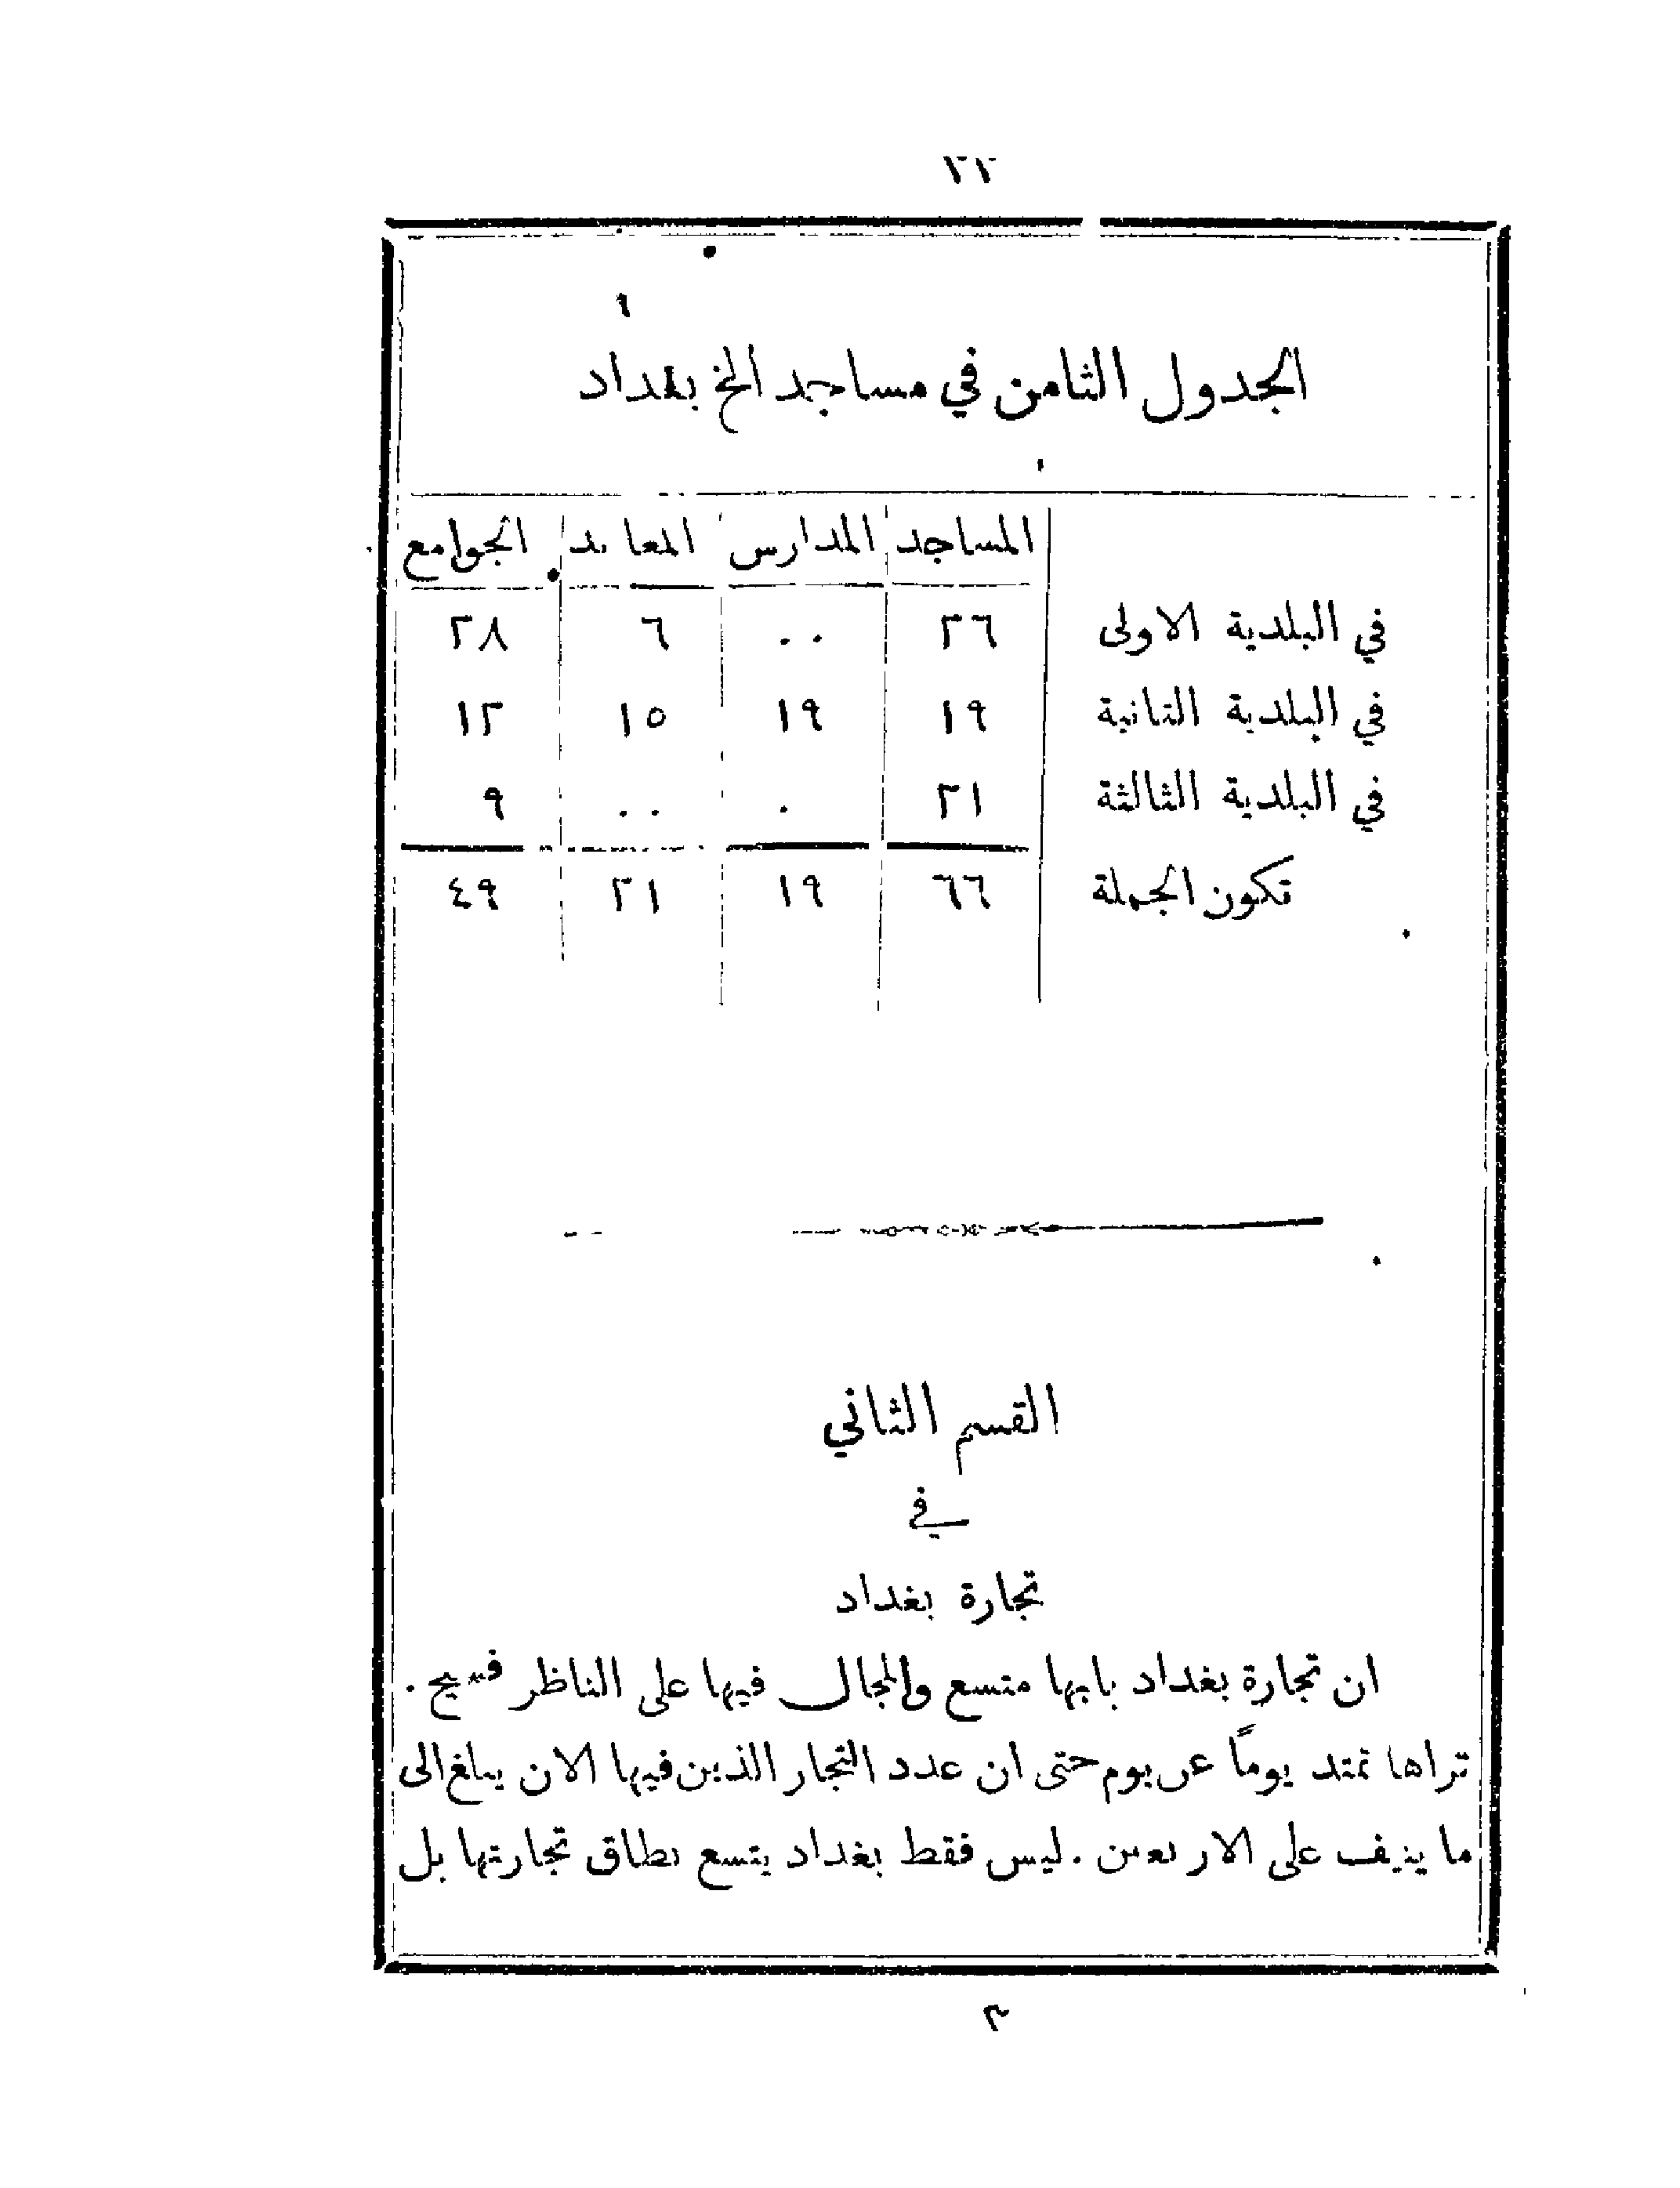 ٣٣
الجدول الثامن في مساجد الخ بغداد
المساجد المدارس المعابد الجوامع
في البلدية الاولى ٢٦ ٠٠ ٦ ٢٨
في البلدية الثانية ١٩ ١٩ ١٥ ١٢
في البلدية الثالثة ٢١ ٠ ٠٠ ٩
تكون الجملة ٦٦ ١٩ ٢١ ٤٩
القسم الثاني
في
تجارة بغداد
ان تجارة بغداد بابها متسع والمجال فيها على الناظر فسيح .
تراها تمتد يوماً عن يوم حتى ان عدد التجار الذين فيها الان يبلغ الى
ما ينيف على الاربعين . ليس فقط بغداد يتسع نطاق تجارتها بل
٣